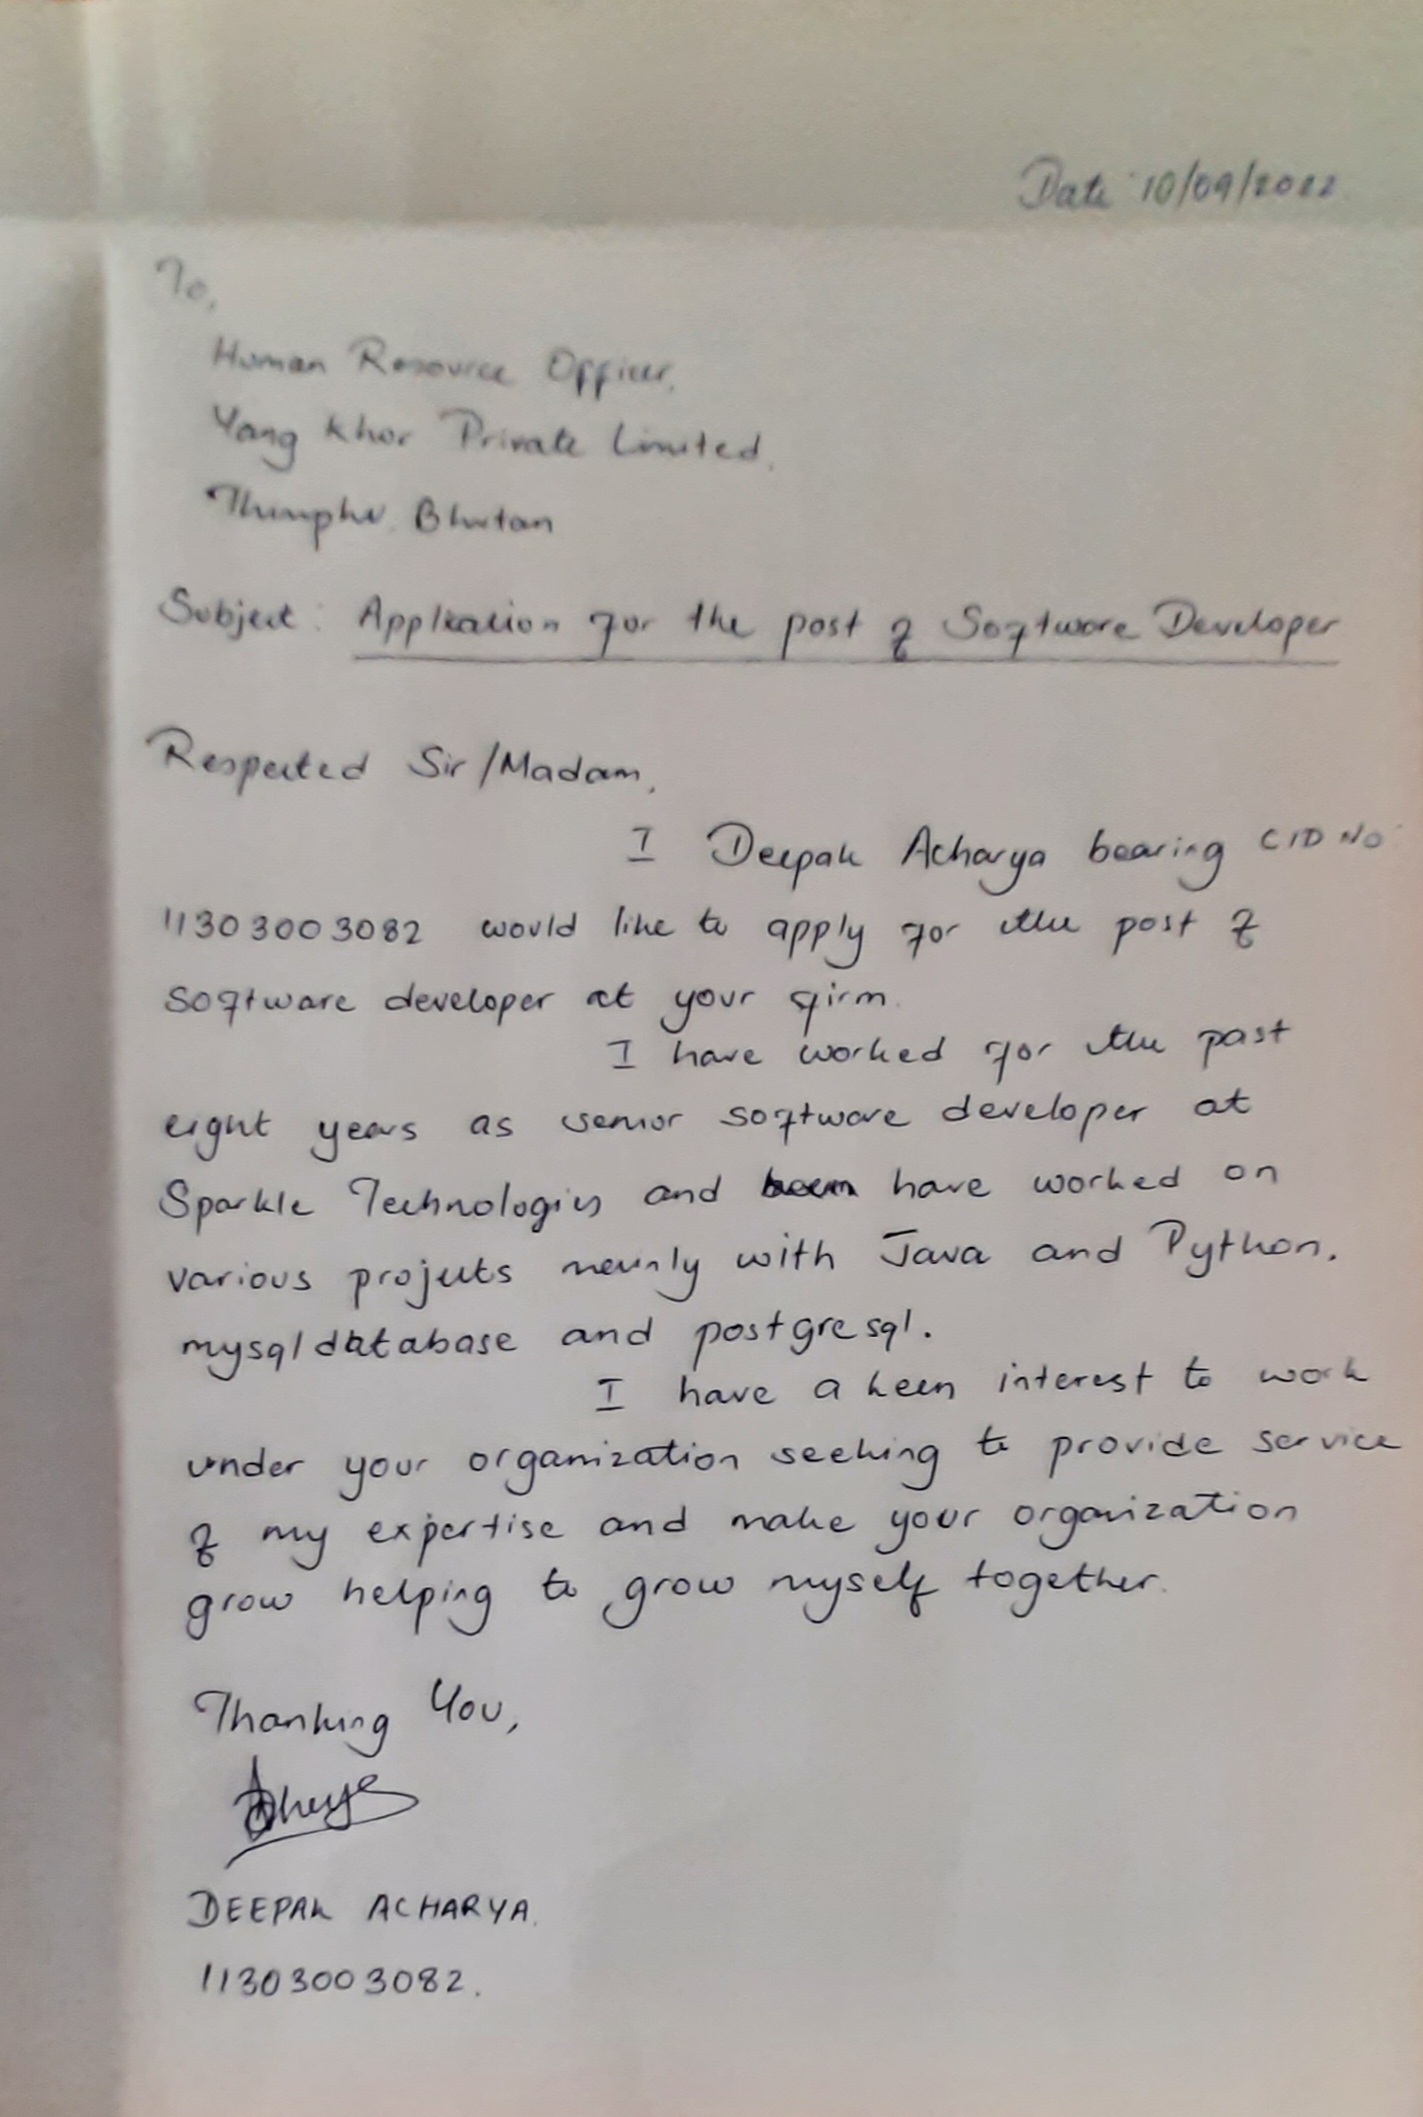 Date 10/09/2022
To,
Human Resource Officer,
Yang Khor Private Limited,
Thimphu. Bhutan
Subject: Application for the post of Software Developer
Respected Sir/Madam,
I Deepak Acharya bearing CID No
11303003082 would like to apply for the post of
software developer at your firm.
I have worked for the past
eight years as senior software developer at
Sparkle Technologies and have worked on
various projects mainly with Java and Python.
mysql database and postgresql.
I have a keen interest to work
under your organization seeking to provide service
of my expertise and make your organization
grow helping to grow myself together.
Thanking You,
DEEPAK ACHARYA.
11303003082.